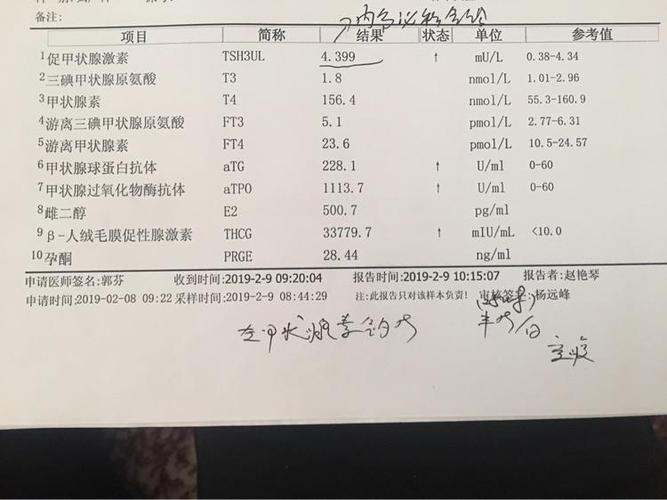 备注:
内分泌科会诊
项目 简称 结果 状态 单位 参考值
1促甲状腺激素 TSH3UL 4.399 ↑ mU/L 0.38-4.34
2三碘甲状腺原氨酸 T3 1.8 nmol/L 1.01-2.96
3甲状腺素 T4 156.4 nmol/L 55.3-160.9
4游离三碘甲状腺原氨酸 FT3 5.1 pmol/L 2.77-6.31
5游离甲状腺素 FT4 23.6 pmol/L 10.5-24.57
6甲状腺球蛋白抗体 aTG 228.1 ↑ U/ml 0-60
7甲状腺过氧化物酶抗体 aTPO 1113.7 ↑ U/ml 0-60
8雌二醇 E2 500.7 pg/ml
9β-人绒毛膜促性腺激素 THCG 33779.7 ↑ mIU/mL <10.0
10孕酮 PRGE 28.44 ng/ml
申请医师签名:郭芬 收到时间:2019-2-9 09:20:04 报告时间:2019-2-9 10:15:07 报告者:赵艳琴
申请时间:2019-02-08 09:22 采样时间:2019-2-9 08:44:29 注:此报告只对该样本负责! 审核签名:杨远峰
左甲状腺素钠片 半片/日